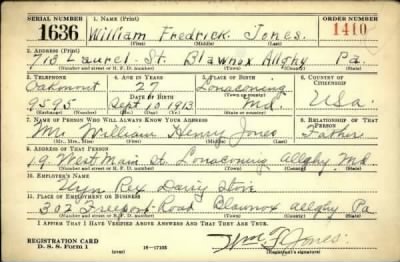 SERIAL NUMBER 1. NAME (Print) ORDER NUMBER
1636 William Fredrick Jones. 1410
(First) (Middle) (Last)
2. ADDRESS (Print)
713 Laurel St. Blawnox Allghy Pa.
(Number and street or R. F. D. number) (Town) (County) (State)
3. TELEPHONE 4. AGE IN YEARS 5. PLACE OF BIRTH 6. COUNTRY OF CITIZENSHIP
Oakmont 27 Lonaconing
DATE OF BIRTH (Town or county)
9595 Sept 10 1913 Md. U.S.a.
(Exchange) (Number) (Mo.) (Day) (Yr.) (State or country)
7. NAME OF PERSON WHO WILL ALWAYS KNOW YOUR ADDRESS 8. RELATIONSHIP OF THAT PERSON
Mr. William Henry Jones Father
(Mr., Mrs., Miss) (First) (Middle) (Last)
9. ADDRESS OF THAT PERSON
19 West Main St. Lonaconing Allghy Md
(Number and street or R. F. D. number) (Town) (County) (State)
10. EMPLOYER'S NAME
Rex Store
11. PLACE OF EMPLOYMENT OR BUSINESS
302 Freeport Road Blawnox allghy Pa
(Number and street or R. F. D. number) (Town) (County) (State)
I AFFIRM THAT I HAVE VERIFIED ABOVE ANSWERS AND THAT THEY ARE TRUE.
REGISTRATION CARD
D. S. S. Form 1 (over) 16—17105 Wm F Jones.
(Registrant's signature)